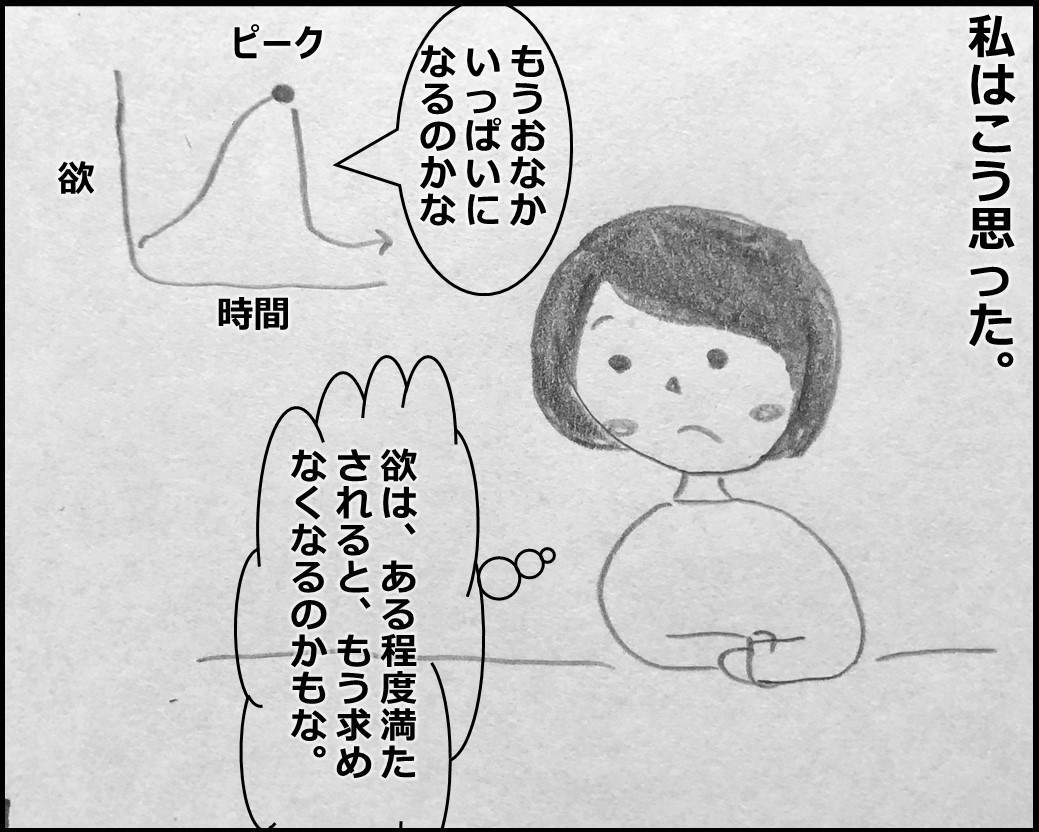 私はこう思った。
もうおなか
いっぱいに
なるのかな
ピーク
欲
時間
欲は、ある程度満た
されると、もう求め
なくなるのかもな。